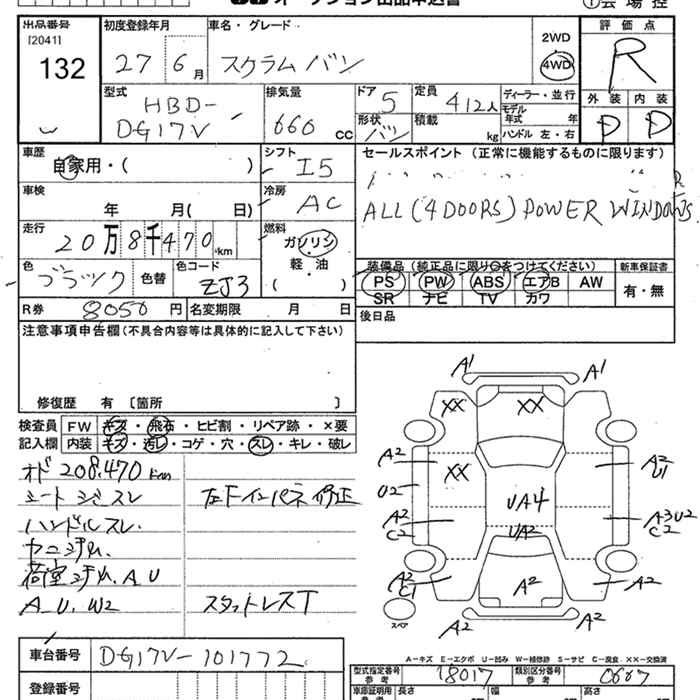 出品番号 [2041] 132
初度登録年月 27 6月
車名・グレード スクラムバン
2WD
4WD
評価点 R
外装 D 内装 D
型式 HBD-
DG17V
排気量 660 cc
ドア 5
形状 バン
定員 4 12人
積載 kg
ディーラー・並行
モデル年式 年
ハンドル 左・右
車歴 自家用・( )
シフト I5
セールスポイント (正常に機能するものに限ります)
ALL (4 DOORS) POWER WINDOWS
車検 年 月( 日)
冷房 AC
走行 20万8千470km
燃料 ガソリン
軽・油
( )
色 ブラック 色替
色コード ZJ3
装備品 (純正品に限り○をつけてください)
PS PW ABS エアB AW
SR ナビ TV カワ
新車保証書
有・無
R券 8050円
名変期限 月 日
後日品
注意事項申告欄(不具合内容等は具体的に記入して下さい)
修復歴 有 〔箇所 〕
検査員 FW キズ・飛石・ヒビ割・リペア跡・×要
記入欄 内装 キズ・汚レ・コゲ・穴・スレ・キレ・破レ
オド 208,470km
シートシミスレ 左下インパネ修正
ハンドルスレ.
ヤニヨゴレ.
荷室ヨゴレ. A. U
A. U. W2 スタットレスT
A1 A1
XX XX
A2 A2
U1
U2 XX
UA4
A2 A3U2
C2 C2
UA2
A2 A2 A2
C1
スペア
A2 A2
車台番号 DG17V-101772
登録番号
A-キズ E-エクボ U-凹み W-補修跡 S-サビ C-腐食 XX-交換済
型式指定番号 参考 18017 類別区分番号 参考 0667
車庫証明用 参考 長さ 幅 高さ